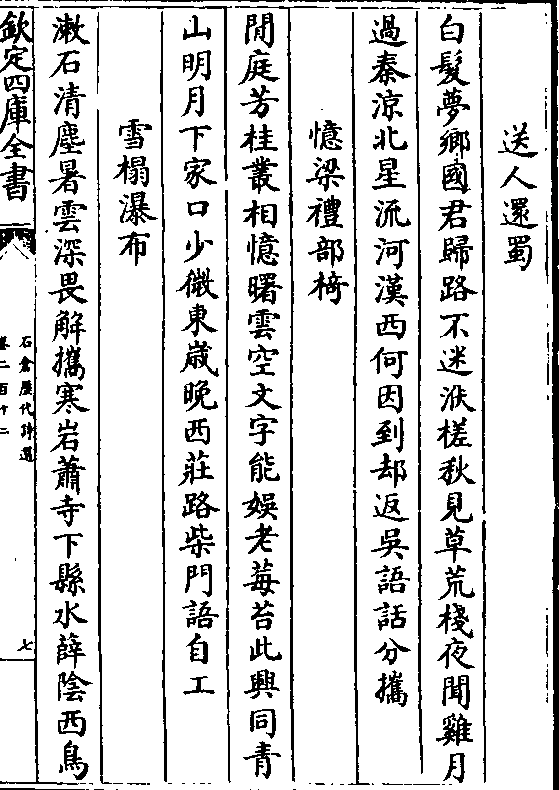 送人還蜀
白髮夢鄉國君歸路不迷洑槎秋見草荒棧夜聞雞月
過秦涼北星流河漢西何因到却返吳語話分攜
憶梁禮部椅
閒庭芳桂叢相憶曙雲空文字能娛老莓苔此興同青
山明月下家口少微東歲晚西莊路柴門語自工
雪榻瀑布
漱石清塵暑雲深畏解攜寒岩蕭寺下縣水薜陰西鳥
欽定四庫全書
石倉歷代詩選
卷二百十二
七